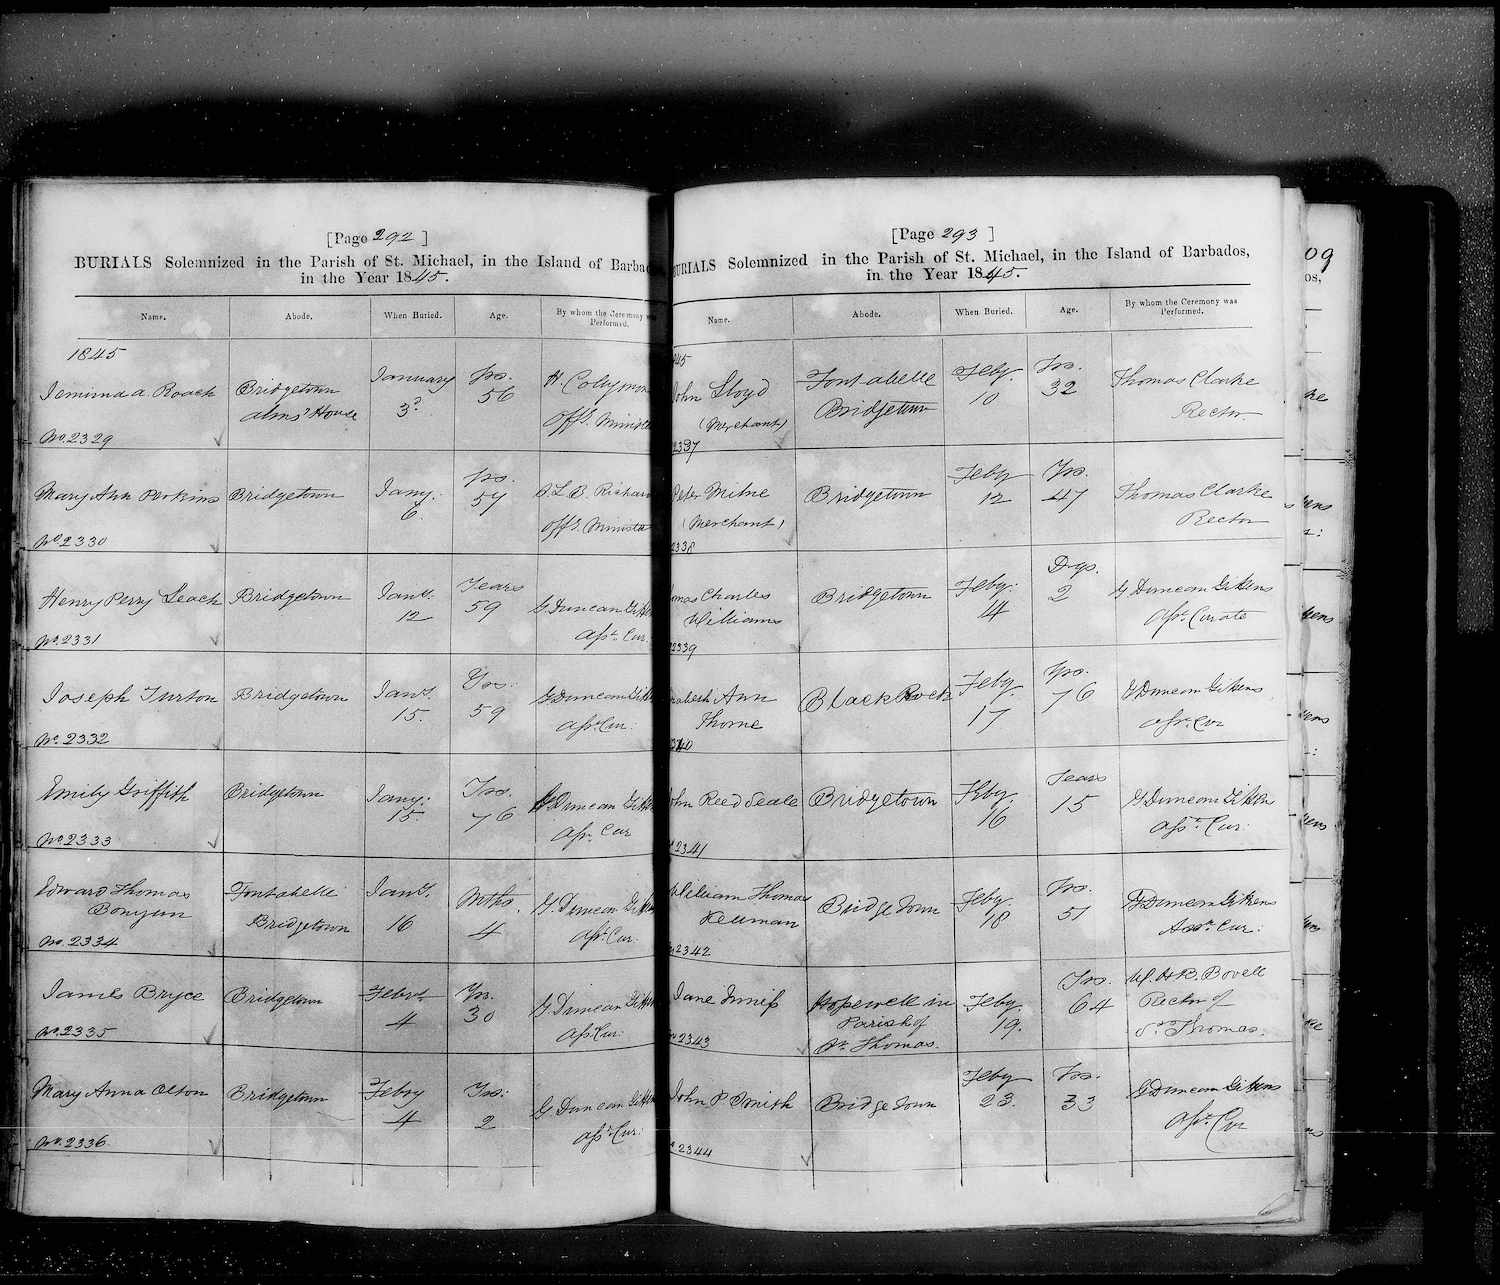 [Page 292 ]
BURIALS Solemnized in the Parish of St. Michael, in the Island of
in the Year 1845.
Name. Abode. When Buried. Age. By whom the Ceremony
Performed.
1845
Jemima a Roach Bridgetown January Yrs. H.
alms' House 3d. 56 Offg.
No. 2329
Mary Ann Perkins Bridgetown Jany. Yrs. Richard
6. 57 Offg.
No. 2330
Henry Perry Leach Bridgetown Jany. Years G Duncan
12 59 Asst. Cur.
No. 2331
Joseph Turton Bridgetown Jany. Yrs. G Duncan
15. 59 Asst. Cur.
No. 2332
Emily Griffith Bridgetown Jany. Yrs. G Duncan
15. 76 Asst. Cur
No. 2333
Edward Thomas Fontabelle Jany. Mths. G. Duncan
Bonyun Bridgetown 16 4 Asst. Cur.
No. 2334
James Bryce Bridgetown Yrs. G Duncan
4 30 Asst. Cur.
No. 2335
Mary Anna Olton Bridgetown Febry Yrs. G Duncan
4 2 Asst. Cur.
No. 2336
[Page 293 ]
BURIALS Solemnized in the Parish of St. Michael, in the Island of Barbados,
in the Year 1845.
Name. Abode. When Buried. Age. By whom the Ceremony was
Performed.
John Lloyd Fontabelle Feby. Yrs. Thomas Clarke
(Merchant) Bridgetown 10 32 Rector
2337
Peter Milne Bridgetown Feby Yrs. Thomas Clarke
(Merchant) 12 47 Rector
2338
Charles Bridgetown Feby. Dys. G Duncan Gittens
Williams 14 2 Asst. Curate
2339
Ann Black Rock Feby Yrs. G Duncan Gittens
Thorne 17 76 Asst. Cur
2340
John Reed Seale Bridgetown Feby. Years G Duncan Gittens
16 15 Asst. Cur.
2341
William Thomas Bridgetown Feby. Yrs. G Duncan Gittens
Kellman 18 51 Asst. Cur.
2342
Jane Inniss Hopewell in Feby. Yrs. W. H B. Bovell
Parish of 19. 64 Rector of
St. Thomas. St. Thomas.
2343
John P Smith Bridgetown Feby Yrs. G Duncan Gittens
23. 33 Asst. Cur
2344
09